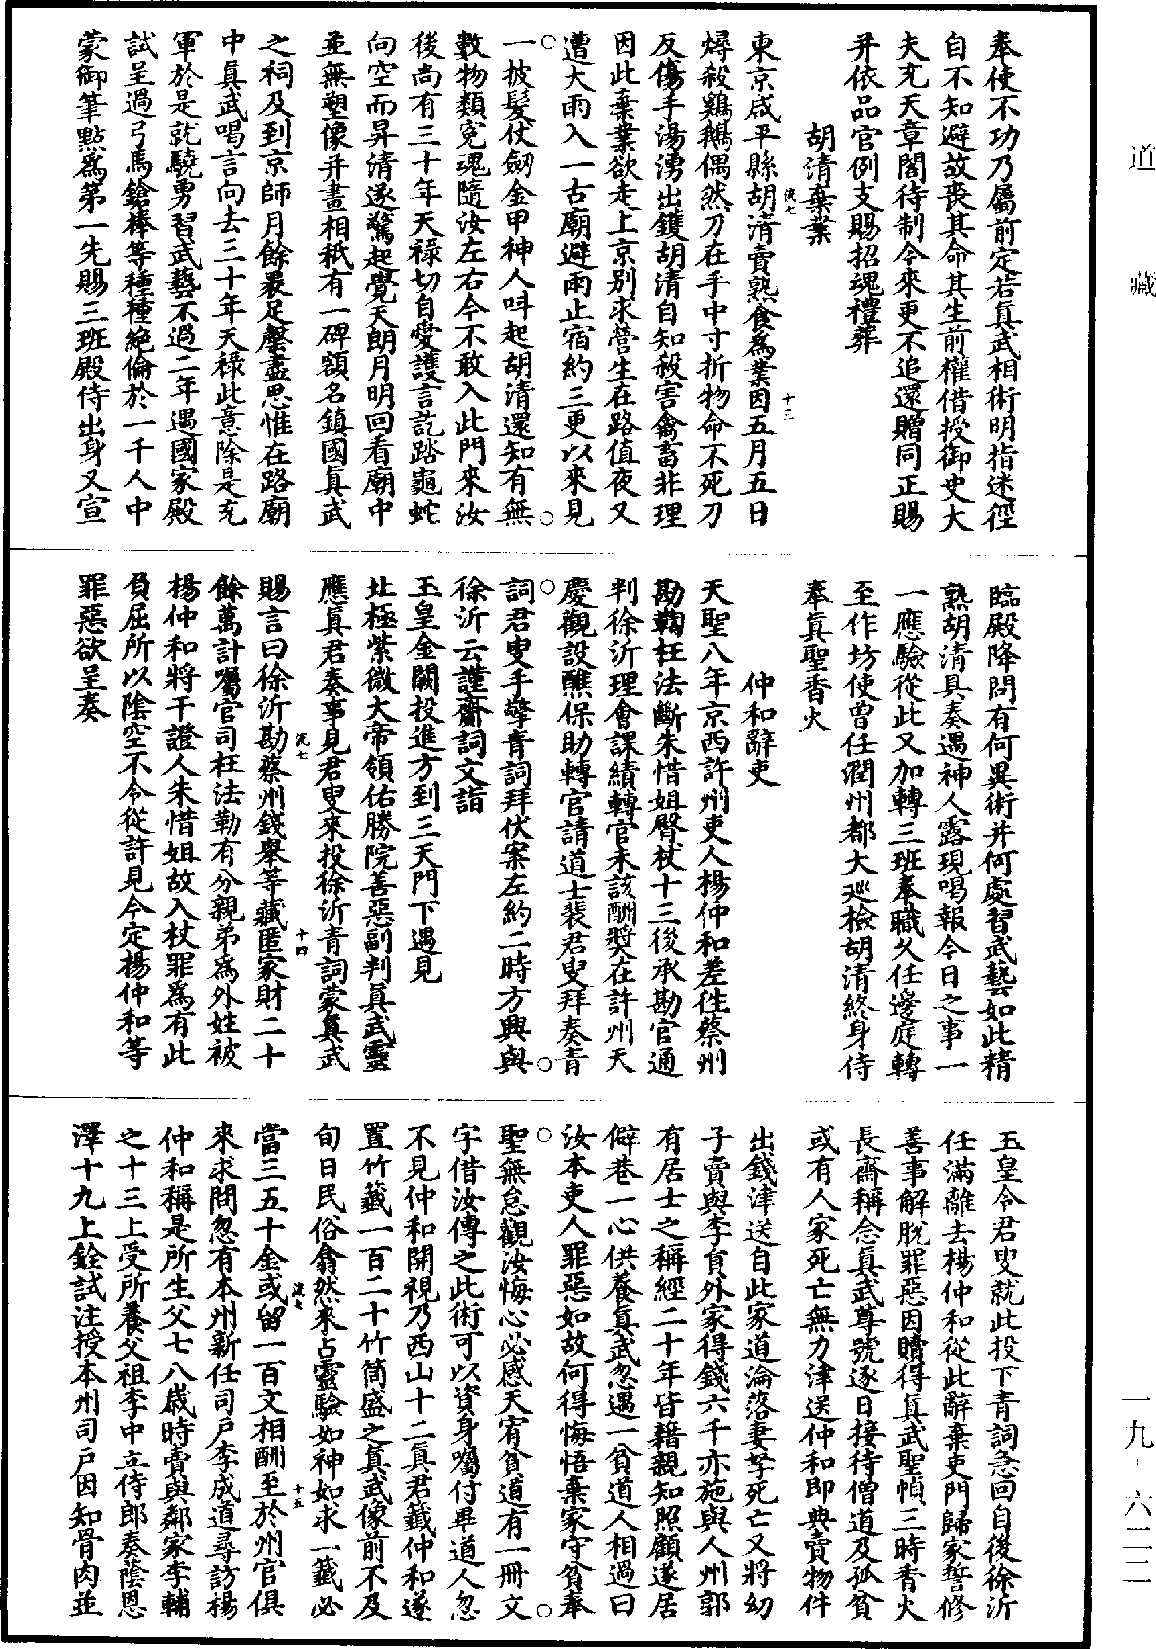 道藏
奉使不功乃屬前定若真武相術明指迷徑
自不知避故喪其命其生前權借授御史大
夫充天章閣待制今來更不追還贈同正賜
幷依品官例支賜招魂禮葬
胡清棄業
東京咸平縣胡清賣熟食爲業因五月五日
燖殺鷄鵝偶然刀在手中寸折物命不死刀
反傷手湯湧出鑊胡清自知殺害禽畜非理
因此棄業欲走上京別求營生在路值夜又
遭大雨入一古廟避雨止宿約三更以來見
一披髮仗劒金甲神人呌起胡清還知有無
數物類寃魂隨汝左右今不敢入此門來汝
後尚有三十年天祿切自愛護言訖踏龜蛇
向空而昇清遂驚起覺天朗月明回看廟中
並無塑像幷畫相秖有一碑額名鎮國真武
之祠及到京師月餘裹足罄盡思惟在路廟
中真武唱言向去三十年天祿此意除是充
軍於是就驍勇習武藝不過二年遇國家殿
試呈過弓馬鎗棒等種種絕倫於一千人中
蒙御筆點爲第一先賜三班殿侍出身又宣
臨殿降問有何異術幷何處習武藝如此精
熟胡清具奏遇神人露現喝報今日之事一
一應驗從此又加轉三班奉職久任邊庭轉
至作坊使曾任潤州都大廵檢胡清終身侍
奉真聖香火
仲和辭吏
天聖八年京西許州吏人楊仲和差徃蔡州
勘鞫枉法斷朱惜姐臀杖十三後承勘官通
判徐沂理會課績轉官未該酬奬在許州天
慶觀設醮保助轉官請道士裴君叟拜奏青
詞君叟手擎青詞拜伏案左約二時方興與
徐沂云謹齋詞文詣
玉皇金闕投進方到三天門下遇見
北極紫微大帝領佑勝院善惡副判真武靈
應真君奏事見君叟來投徐沂青詞蒙真武
賜言曰徐沂勘蔡州錢舉等藏匿家財二十
餘萬計囑官司枉法勒有分親弟爲外姓被
楊仲和將干證人朱惜姐故入杖罪爲有此
負屈所以陰空不令從許見今定楊仲和等
罪惡欲呈奏
玉皇令君叟就此投下青詞急回自後徐沂
任滿離去楊仲和從此辭棄吏門歸家誓修
善事解脫罪惡因贖得真武聖幀三時香火
長齋稱念真武尊號逐日接待僧道及孤貧
或有人家死亡無力津送仲和即典賣物件
出錢津送自此家道淪落妻孥死亡又將幼
子賣與李負外家得錢六千亦施與人州郭
有居士之稱經二十年皆藉親知照顧遂居
僻巷一心供養真武忽遇一貧道人相過曰
汝本吏人罪惡如故何得悔悟棄家守貧奉
聖無怠觀汝悔心必感天宥貧道有一冊文
字借汝傳之此術可以資身囑付畢道人忽
不見仲和開視乃西山十二真君籤仲和遂
置竹籤一百二十竹筒盛之真武像前不及
旬日民俗翕然來占靈驗如神如求一籤必
當三五十金或留一百文相酬至於州官俱
來求問忽有本州新任司戶李成道尋訪楊
仲和稱是所生父七八歲時賣與鄰家李輔
之十三上受所養父祖李中立侍郎奏蔭恩
澤十九上銓試注授本州司戶因知骨肉並
一九·六二二